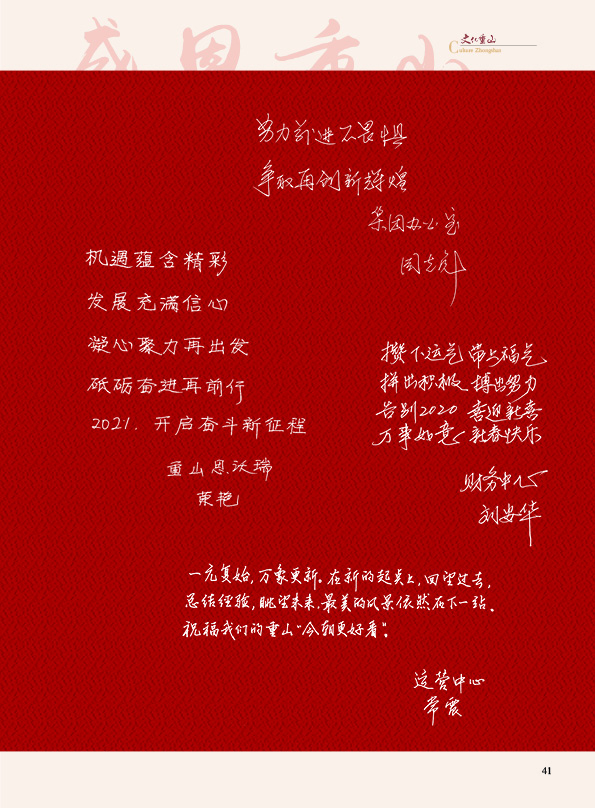 感恩重山
文化重山
Culture Zhongshan
努力前进不畏惧
争取再创新辉煌
集团办公室
机遇蕴含精彩
发展充满信心
凝心聚力再出发
砥砺奋进再前行
2021. 开启奋斗新征程
重山恩沃瑞
荣艳
攒下运气 带上福气
拼出积极 搏出努力
告别2020 喜迎新春
万事如意 新春快乐
财务中心
刘安华
一元复始,万象更新。在新的起点上,回望过去,
总结经验,眺望未来,最美的风景依然在下一站。
祝福我们的重山“今朝更好看”。
运营中心
常震
41